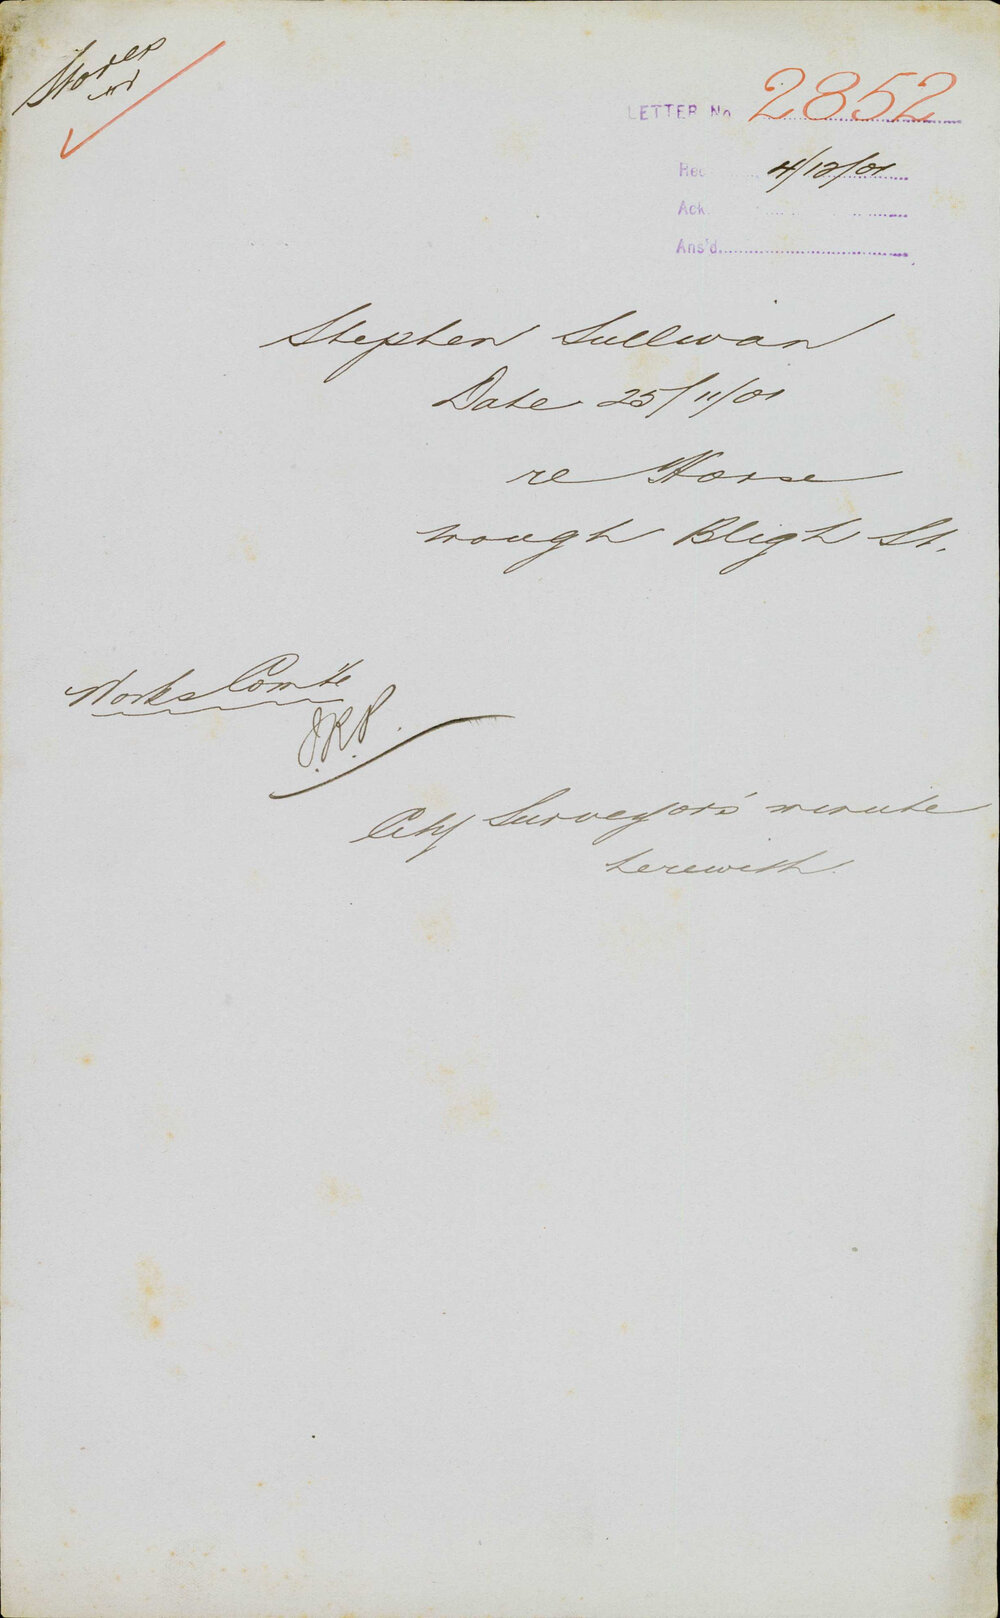 LETTER No 2852
Rec 4/12/01
Ack.
Ans'd
Stephen Sullivan
Date 25/11/01
re Horse
trough Bligh St.
Works Com'te
J.R.P.
City Surveyor's minute
herewith.